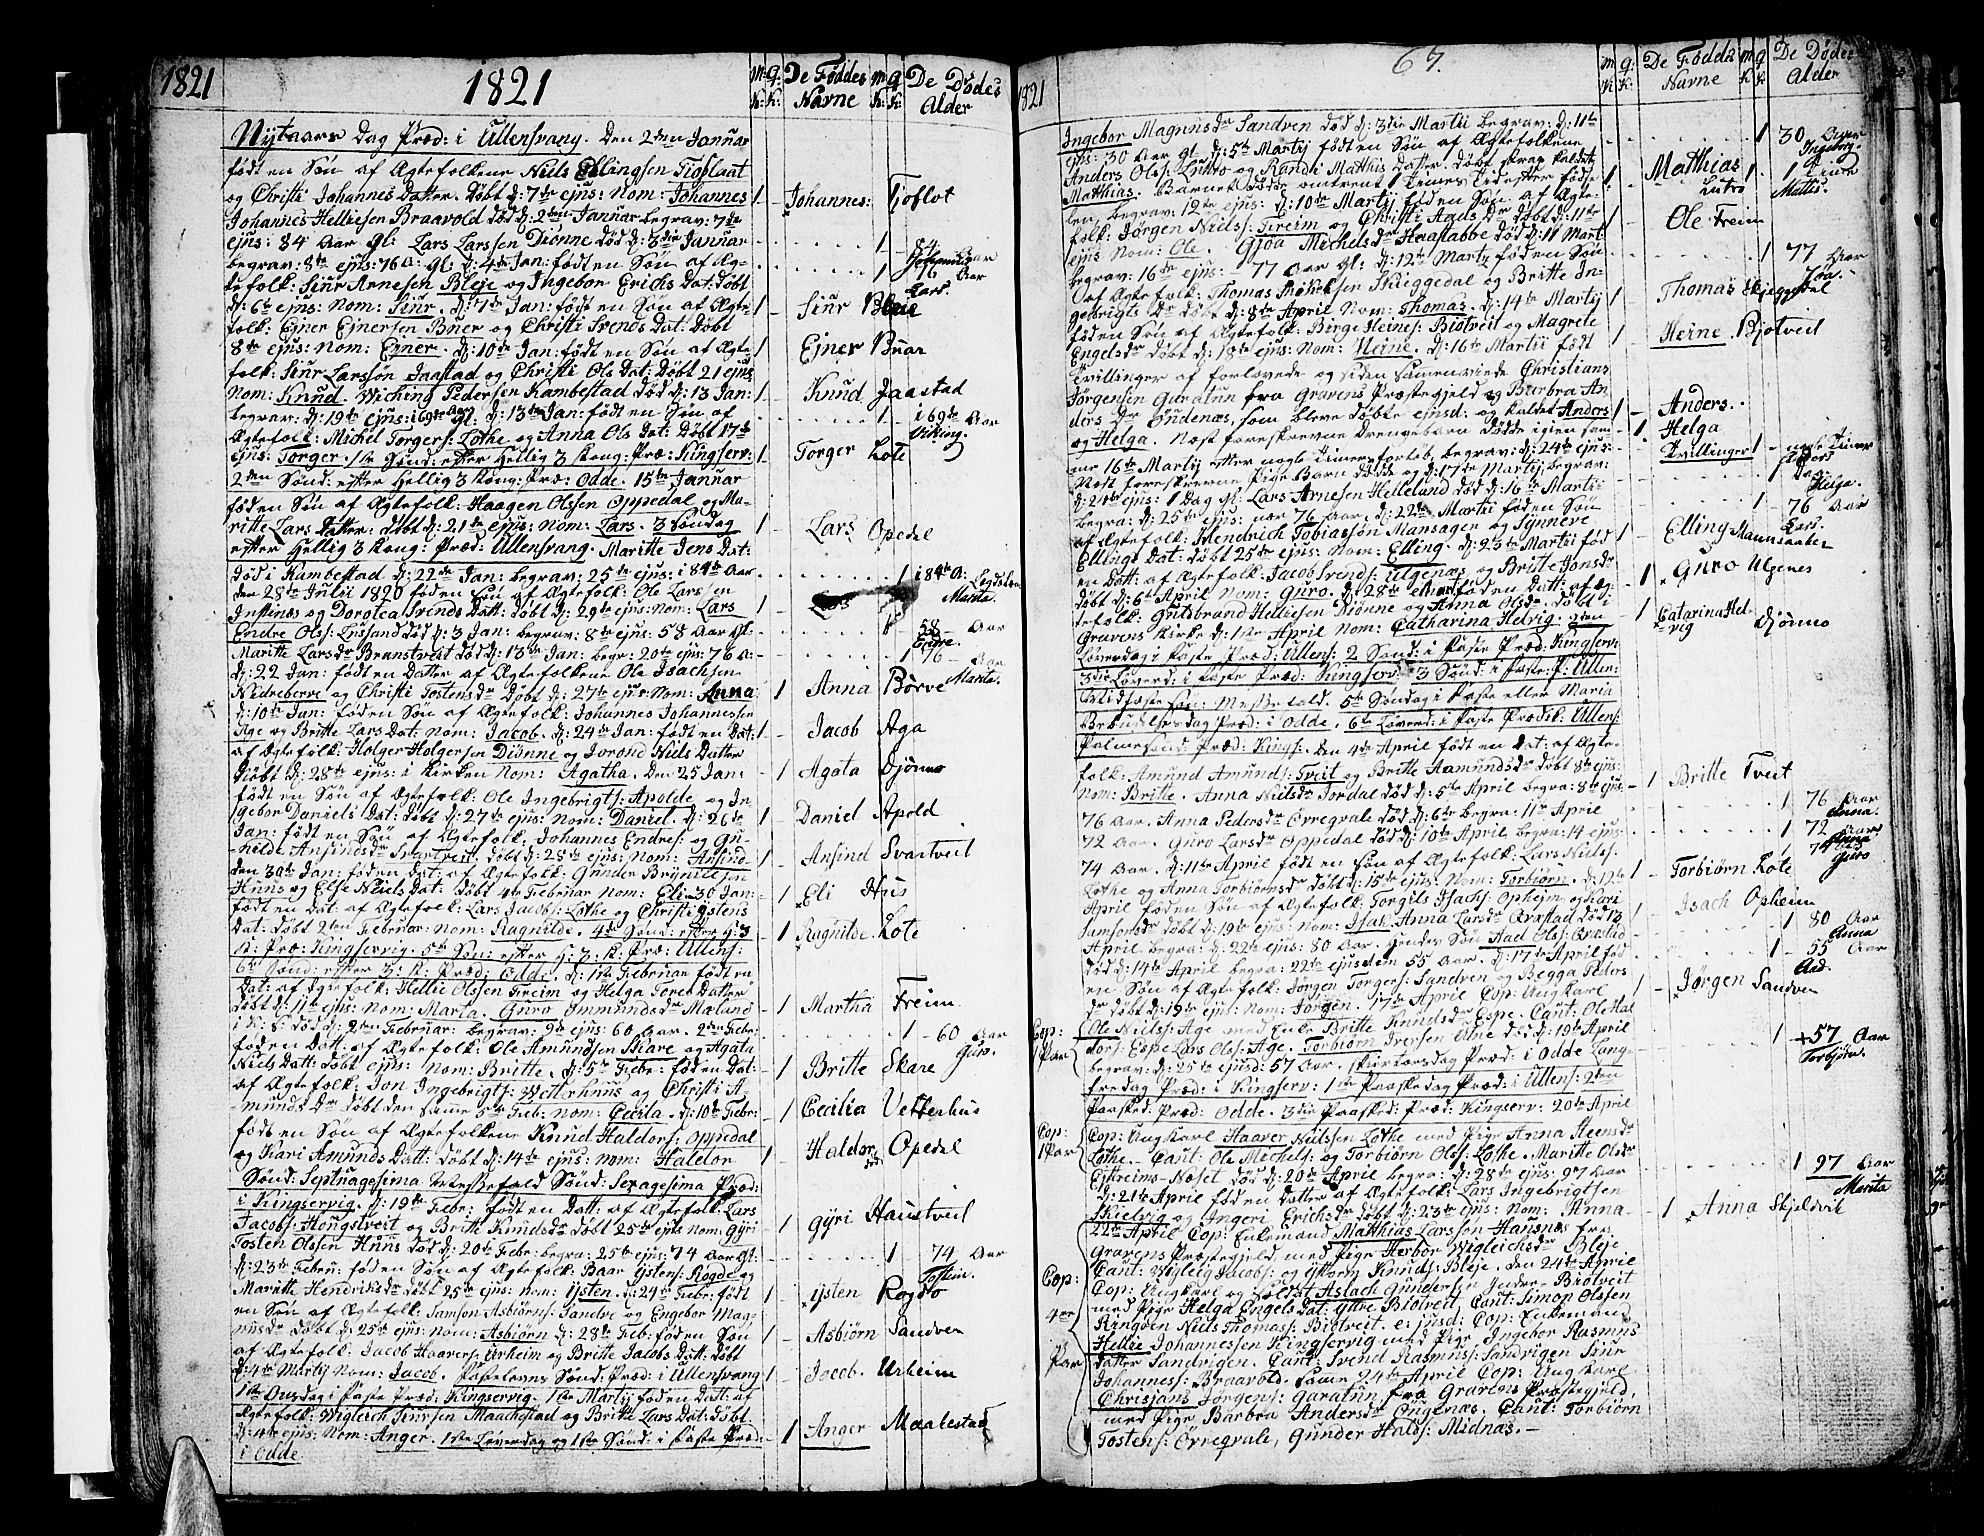 1821
1821
m: K: q: K: De Føddes Navne m: K: q: K: De Dødes Alder
Nytaars Dag Præd: i Ullensvang. Den 2den Januar
født en Søn af Ægtefolkene Niels Ellingsen Tioflaat
og Christi Johannes Datter. Døbt d: 7de ejus: Nom: Johannes
Johannes Helliesen Braavold død d: 2den Januar begrav: 7de
ejus: 84 Aar gl: Lars Larssen Diønne død d: 3die Januar
begrav: 8de ejus: 76 A: gl: d: 4de Jan: født en Søn af Æg-
tefolk: Siur Arnesen Bleje og Ingebor Erichs Dat: Døbt
d: 6te ejus: Nom: Siur. d: 7de Jan: født en Søn af Ægte
folk: Ejner Ejnersen Buer og Christi Svends Dat: Døbt
8de ejus: Nom: Ejner. d: 10de Jan: født en Søn af Ægte
folk: Siur Larssøn Jaastad og Christi Ole Dat: Døbt 21 ejus
Nom: Knud. Wiching Pedersen Kambestad død d: 13 Jan:
begrav: d: 19de ejus: i 69de Aar gl. d: 13de Jan: født en Søn af
Ægtefolk: Michel Torgers: Lothe og Anna Ols Dat: Døbt 17de
ejus: Torger. 1ste Sønd: efter Hellig 3 Kong: Præ: Kingserv:
2den Sønd: efter Hellig 3 Kong: Præ: Odde. 15de Januar
føden Søn af Ægtefolk: Haagen Olssen Oppedal og Ma-
ritte Lars Datter: Døbt d: 21de ejus: Nom: Lars. 3 Søndag
efter Hellig 3 Kong: Præd: Ullensvang. Maritte Jens Dat:
død i Kambestad d: 22de Jan: begrav: 25de ejus: i 84de Aar
den 28de Julii 1820 føden Søn af Ægtefolk: Ole Larssen
Instinæs og Dorotea Svends Datt: døbt d: 29de ejus: Nom: Lars
Endre Olss: Lussand død d: 3 Jan: begrav: 8de ejus: 58 Aar gl.
Maritte Larsdr Brunstveit død d: 13de Jan: begr: 20de ejus: 76 A:
d: 22 Jan: født en Datter af Ægtefolkene Ole Isachsen
Nedreberve og Christi Tostensdr Døbt d: 27de ejus: Nom: Anna
d: 10de Jan: føden Søn af Ægtefolk: Johannes Johannessen
Age og Britte Lars Dat: Nom: Jacob. d: 24de Jan: født en Dat:
af Ægtefolk: Holger Holgersen Diønne og Jorond Niels Datter
Døbt d: 28de ejus: i Kirken Nom: Agatha. Den 25 Jan:
født en Søn af Ægtefolk: Ole Ingebrigts: Apolde og In
gebor Daniels Dat: døbt d: 27de ejus: Nom: Daniel. d: 26de
Jan: født en Søn af Ægtefolk: Johannes Endres: og Gu-
nilde Ansindsdr Svartveit. døbt d: 28de ejus: Nom: Ansind
den 30de Jan: føden Dat: af Ægtefolk: Gunder Brynnilsen
Huus og Else Niels Dat: Døbt 4de Februar Nom: Eli. 30 Jan:
født en Dat: af Ægtefolk: Lars Jacobs: Lothe og Christi Ystens
Dat: døbt 2den Februar: Nom: Ragnilde. 4de Sønd: efter H: 3
K: Præ: Kingservig. 5te Søn: efter H: 3: K: Præ: Ullens:
6te Sønd: efter 3: K: Præd: Odde. d: 1ste Februar født en
Dat: af Ægtefolk: Hellie Olssen Freim og Helga Tores Datter
døbt d: 11te ejus: Nom: Marta. Guro Omundsdr Mæland
død d: 2den Februar: begrav: 9de ejus: 60 Aar. 2den Febr:
føden Datt: af Ægtefolk: Ole Amundsen Skare og Agata
Niels Datt: døbt ejus: Nom: Britte. d: 5te Febr: føden Dat:
af Ægtefolk: Jon Ingebrigts: Wetterhuus og Christi A
munds Dr døbt den samme 5te Feb: Nom: Cecilia. d: 10de Febr:
født en Søn af Ægtefolkene Knud Haldors: Oppedal
og Kari Amunds Datt: døbt d: 14de ejus: Nom: Haldor
Sønd: Septuagesima Messefald Sønd: Sexagesima Præd:
i Kingservig. d: 19de Febr: født en Datt: af Ægtefolk: Lars
Jacobs: Hougstveit og Britte Knudsdr døbt 25de ejus Nom: Gyri
Tosten Olssen Huus død d: 20de Febr: begra: 25de ejus: 74 Aar gl:
d: 23de Febru: føden Søn af Ægtefolk: Baar Ystens: Rogde og
Maritte Hendriksdr døbt 25de ejus: Nom: Ysten. d: 24de Febr: født
en Søn af Ægtefolk: Samson Asbiørns: Sandve og Engebor Mag-
nusdr døbt d: 25de ejus: Nom: Asbiørn. d: 28de Feb: føden Søn
af Ægtefolk: Jacob Haavers: Urheim og Britte Jacobs Datt: døbt
d: 4de Martij Nom: Jacob. Fastelavns Sønd: Præd: i Ullensvang
1ste Onsdag i Faste Præd: Kingservig. 1ste Martij føden Datt: af
Ægtefolk: Wigleich Siursen Maachestad og Britte Lars Dat: døbt
d: 4de ejus: Nom: Anger. 1ste Løverdag og 1ste Sønd: i Faste Præd:
i Odde
Johannes: Tjoflot
84 Aar
Johannes
76 Aar
Lars.
Siur Bleie
Ejner Buar
Knud Jaastad
i 69de Aar
Viking.
Torger Lote
Lars Opedal
i 84de A:
Marita.
Lars
58 Aar
Endre.
76 Aar
Marita.
Anna Børve
Jacob Aga
Agata Djønno
Daniel Apold
Ansind Svartveit
Eli Hus
Ragnilde. Lote
Martha Freim
60 Aar
Guro.
Britte Skare
Cecilia Vetterhus
Haldor Opedal
død
Gyri Haustveit
74 Aar
Tostein.
Ysten Rogdo
Asbiørn Sandven
Jacob. Urheim
Anger Maakestad
1821
67.
m K: q: K: De Fødde Navne m K: q K: De Dødes Alder
Ingebor Magnusdr Sandven død d: 3die Martii begrav: d: 11te
ejus: 30 Aar gl. d: 5te Martij født en Søn af Ægtefolkene
Anders Ols: Lutro og Randi Mathis Datter. døbt strax kaldet
Matthias. Barnet døde omtrent 1 Times Tid efter fødse
len, begrav: 12te ejus: d: 10de Martij føden Søn af Ægte
folk: Jørgen Niels: Freim og Christi Aads Dr døbt d: 11te
ejus Nom: Ole. Gjoa Michelsdr Haastabbe død d: 11 Mart:
begrav: 16te ejus: 77 Aar gl: d: 12te Marti føden Søn
af Ægtefolk: Thomas Skieggedal og Britte In-
gebrigts Dr døbt d: 8de April Nom: Thomas. d: 14de Martij
føden Søn af Ægtefolk: Birge Heines: Biotveit og Magrete
Engelsdr døbt d: 18de ejus: Nom: Heine. d: 16te Martii født
Tvillinger af forlovede og siden sammenviede Christians
Jørgensen Garatun fra Gravens Præstegjeld og Barbra An-
ders Dr Øndenæs, som bleve døbte ejusd: og kaldet Anders
og Helga. Næst foreskrevne Drengebarn døde igien sam-
me 16te Martij efter nogle Timers forløb, begrav: d: 24de ejus:
Næst foreskrevne Pige Barn døde og d: 17de Martij, begrav:
d: 24de ejus: 1 Dag gl: Lars Arnesen Helleland død d: 16te Martii
begra: d: 25de ejus: nær 76 Aar. d: 22de Martii føden Søn
af Ægtefolk: Hendrich Tobiassøn Mansagen og Synneve
Ellings Dat: døbt 25de ejus: Nom: Elling. d: 23de Martii fød
en Datt: af Ægtefolk: Jacob Svends: Ulgenæs og Britte Jonsdr
døbt d: 6te April Nom: Guro. d: 28de Mart: føden Datt: af Æg-
tefolk: Gutsbrand Helliesen Diønne og Anna Olsdr døbt i
Gravens Kirke d: 1ste April Nom: Catharina Helvig. 2den
Løverdag i Faste Præd: Ullens: 2 Sønd: i Faste Præd: Kingserv:
3die Løverd: i Faste Præd: Kingserv: 3 Sønd: i Faste: P: Ullen:
Midfaste Søn: Messefald. 5te Søndag i Faste eller Maria
Bebudelses Dag Præd: i Odde. 6te Løverd: i Faste Prædik: Ullens:
Palmesønd: Præd: Kings: Den 4de April født en Dat: af Ægte-
folk: Amund Amunds: Tveit og Britte Aamundsdr døbt 8de ejus:
Nom: Britte. Anna Nielsdr Jordal død d: 5te April begra: 8de ejus:
76 Aar. Anna Pedersdr Ørregvale død d: 6te begra: 11te April
72 Aar. Guro Larsdr Oppedal død d: 10de April begra: 14 ejus:
74 Aar. d: 11te April født en Søn af Ægtefolk: Lars Niels:
Lothe og Anna Torbiørnsdr døbt d: 15de ejus: Nom: Torbiørn. d: 12te
April føden Søn af Ægtefolk: Torgils Isachs: Opheim og Kari
Samsonsdr døbt d: 19de ejus: Nom: Isak. Anna Larsdr Qvæstad død 13
April begra: d: 22de ejus: 80 Aar. Hendes Søn Aad Ols: Qvæstad
død d: 14de April begra: 22de ejusdem 55 Aar. d: 17de April fød
en Søn af Ægtefolk: Jørgen Torgers: Sandven og Begga Peders
dr døbt d: 19de ejus: Nom: Jørgen. 17de April Cop: Ungkarl
Ole Niels: Age med Enke Britte Knudsdr Espe. Caut: Ole Hal
dors: Espe Lars Ols: Age. Torbiørn Iversen Alne død d: 19de April
begrav: d: 25de ejusd: 57 Aar. Skiertorsdag Præd: i Odde Lang-
fredag Præd: i Kingserv: 1ste Paaskedag Præd: i Ullens: 2den
Paasked: Præd: Odde. 3die Paasked: Præd: Kingserv: 20de April
Cop: Ungkarl Haaver Nielssen Lothe med Pige Anna Steensdr
Lothe. Caut: Ole Michels: og Torbiørn Ols: Lothe. Maritte Olsdr
Ejtreims-Næset død d: 20de April begra: d: 28de ejus: 97 Aar
d: 21de April føden Datter af Ægtefolk: Lars Ingebrigtsen
Skielvig og Ingeri Erichsdr døbt d: 23de ejus: Nom: Anna.
22de April Cop: Enkemand Matthias Larssen Hausnæs fra
Gravens Præstegjeld med Pige Herbor Wigleichsdr Bleje
Caut: Wigleig Jacobs: og Guttorm Knuds: Bleje. Den 24de April
Cop: Ungkarl og Soldat Aslach Gundersen Indre-Biotveit
med Pige Helga Engels Dat: Yttre Biotveit. Caut: Simon Olssen
Ringøen Niels Thomass: Biotveit. e: jusd: Cop: Enkemand
Hellie Johannessen Kingservig med Pige Ingebor Rasmus
Datter Sandvigen. Caut: Svend Rasmus: Sandvigen Siur
Johanness: Braavold. Samme 24de April Cop: Ungkarl
Chrisjans Jørgens: Garatun fra Gravens Præstegjeld,
med Pige Barbra Andersdr Ougenæs. Caut: Torbiørn
Tostens: Ørregvale, Gunder Halds: Midnæs.
Cop: 1 Par
Cop: 1 Par
Cop: 4re Par
30 Aar
Ingeborg.
Matthias Lutro
1 Time
Mattis.
Ole Freim
77 Aar
Joa.
Thomas Skjeggedal
Heine. Bjotveit
Anders.
Helga
Tvillinger
nogle Timer
Anders
1 Dag.
Helga.
76 Aar
Lars.
Elling Mannsaaker
Guro Ulgenes
Catarina Hel-
vig Djønno
Britte Tveit
76 Aar
Anna.
72 Aar
Anna
74
Guro
Torbiørn Lote
Isach Opheim
80 Aar
Anna
55 Aar
Aad.
Jørgen Sandven
57 Aar
Torbjørn.
97 Aar
Marita
Anna Skjeldvik